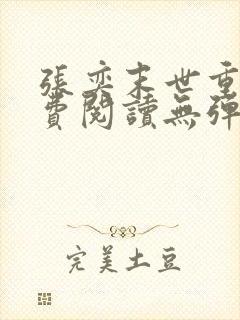 張奕末世重
費閱讀無彈
完美土豆